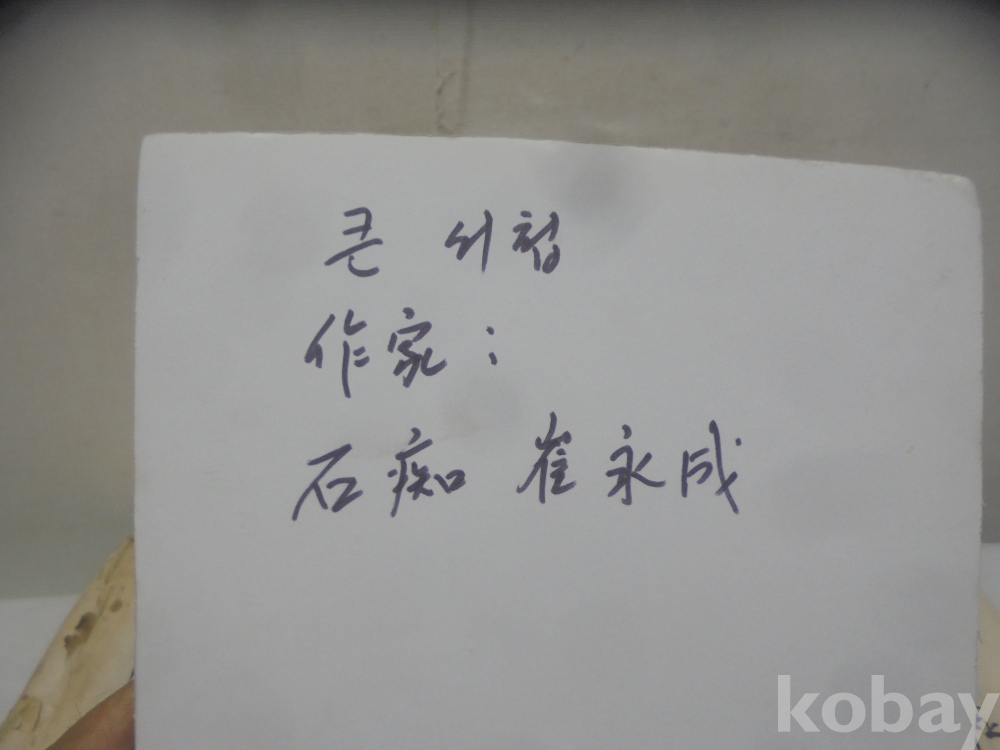 큰 서첩
作家 :
石痴 崔永成
kobay